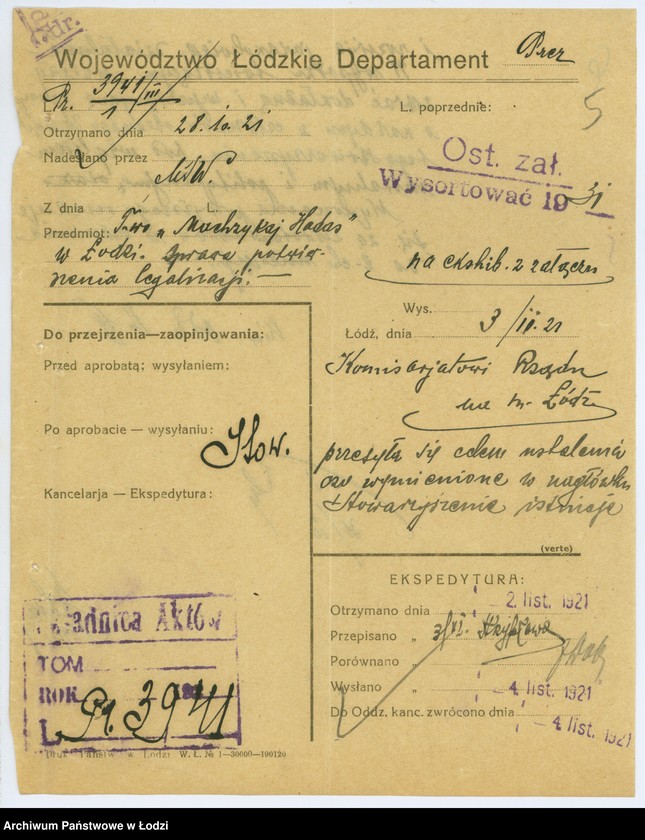 Województwo Łódzkie Departament Prez
Pr. 3941/III
1
L. poprzednie:
5
Otrzymano dnia 28.10.21
Nadesłano przez MSW.
Ost. zał.
Wysortować 19 31
Z dnia L.
Przedmiot: T-wo „Machzykaj Hadas"
w Łodzi. Sprawa potwier-
dzenia legalizacji.—
na ekshib. z załączn
Wys.
Łódź, dnia 3/11.21
Do przejrzenia—zaopinjowania:
Przed aprobatą; wysyłaniem:
Komisarjatowi Rządu
na m. Łódź
Po aprobacie — wysyłaniu:
Stow.
przesyła się celem ustalenia
czy wymienione w nagłówku
Stowarzyszenie istnieje
Kancelarja — Ekspedytura:
(verte)
EKSPEDYTURA:
Otrzymano dnia 2. list. 1921
Przepisano „ 3/11.
Porównano „
Wysłano „ 4. list. 1921
Do Oddz. kanc. zwrócono dnia 4. list. 1921
Składnica Aktów
TOM
ROK 192
L. Pr. 3941
Druk Państw. w Łodzi W. Ł. № 1—30000—190120
Archiwum Państwowe w Łodzi